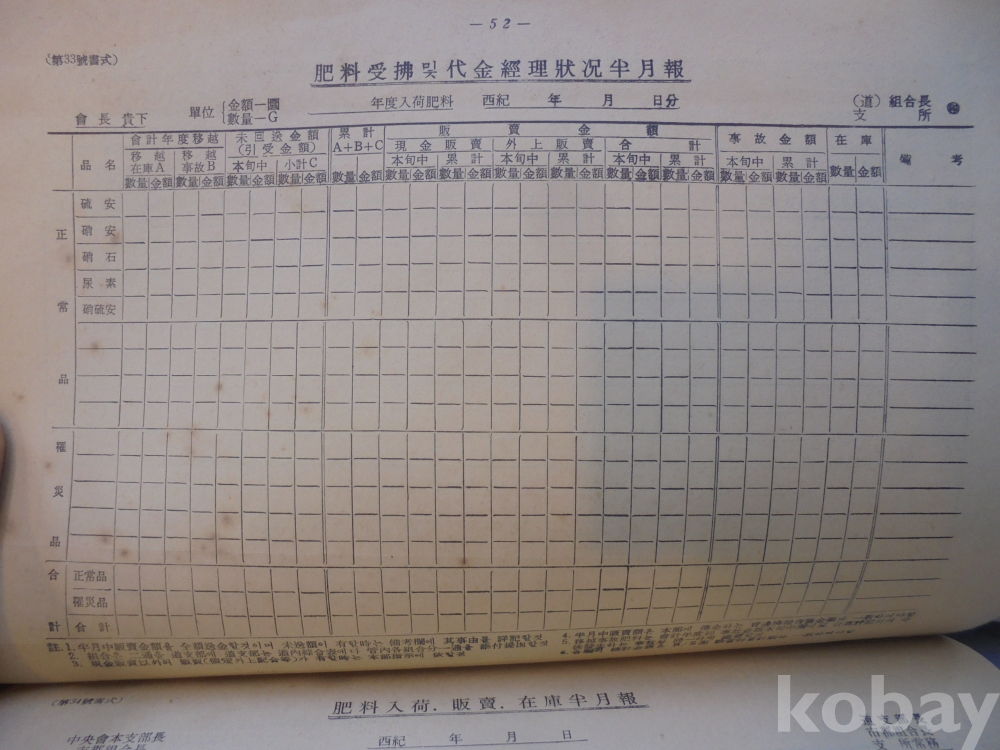 — 52 —
(第33號書式)
肥料受拂 및 代金經理狀况半月報
會長 貴下
單位 金額—圜
數量—G
年度入荷肥料 西紀 年 月 日分
(道) 組合長
支 所
品名
會計年度移越
移越在庫A
移越事故B
未回送金額
(引受金額)
本旬中 小計C
累計
A+B+C
販賣金額
現金販賣 外上販賣 合計
本旬中 累計 本旬中 累計 本旬中 累計
事故金額
本旬中 累計
在庫
備考
數量 金額 數量 金額 數量 金額 數量 金額 數量 金額 數量 金額 數量 金額 數量 金額 數量 金額 數量 金額 數量 金額 數量 金額 數量 金額 數量 金額
正常品
硫安
硝安
硝石
尿素
硝硫安
罹災品
合計
正常品
罹災品
合計
註.1. 半月中販賣金額을 全額送金할것이며 未送額이 有할時는 備考欄에 其事由를 詳記할것
(第34號書式)
肥料入荷. 販賣. 在庫半月報
中央會本支部長
西紀 年 月 日
kobay